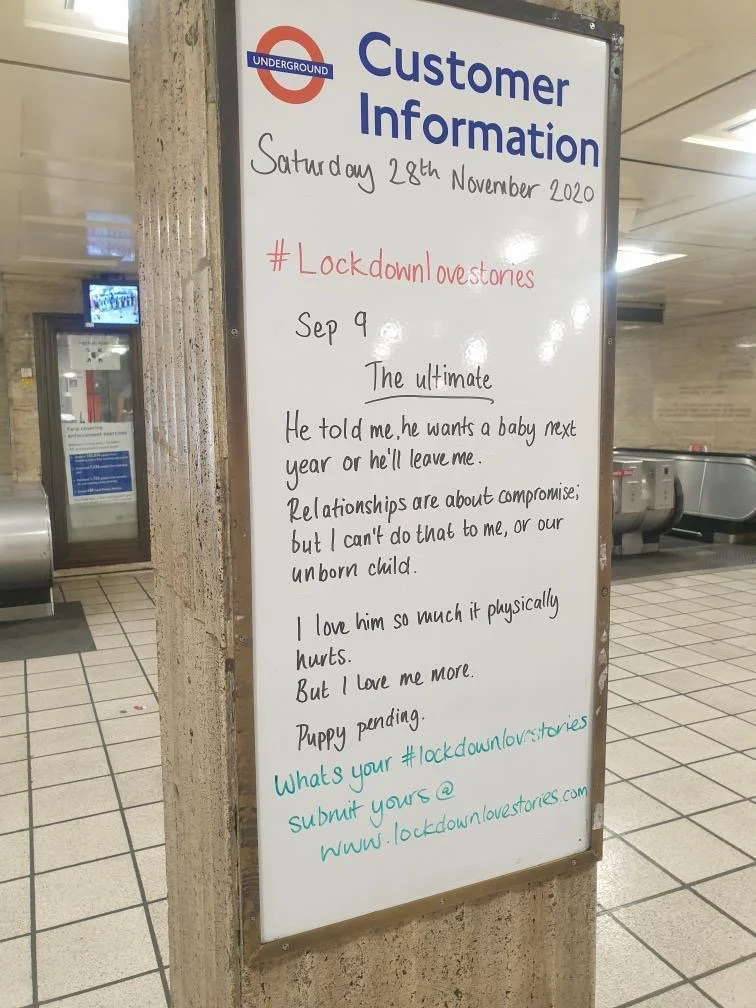 UNDERGROUND
Customer
Information
Saturday 28th November 2020
#Lockdownlovestories
Sep 9
The ultimate
He told me, he wants a baby next
year or he'll leave me.
Relationships are about compromise;
but I can't do that to me, or our
unborn child.
I love him so much it physically
hurts.
But I love me more.
Puppy pending.
Whats your #lockdownlovestories
submit yours @
www.lockdownlovestories.com
Face covering
enforcement exercises